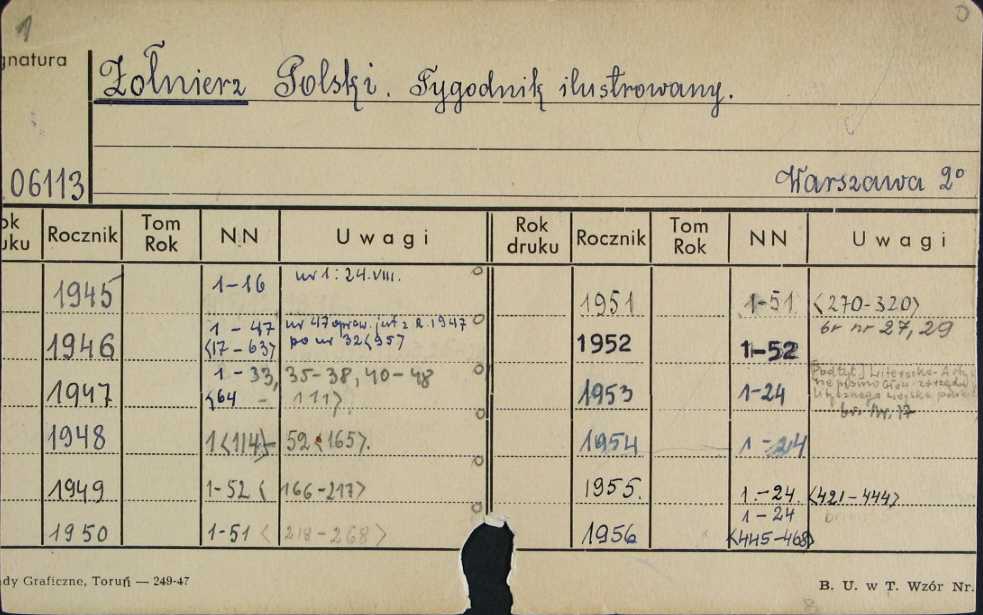 1
gnatura
Żołnierz Polski. Tygodnik ilustrowany.
06113
Warszawa 2°
ok uku Rocznik Tom Rok NN Uwagi Rok druku Rocznik Tom Rok NN Uwagi
1945 1-16 nr 1: 24.VIII. 1951 1-51 <270-320>
br nr 27, 29
1946 1 - 47 nr 47 opraw. już z R. 1947 1952 1-52
<17 - 63> po nr 32<95>
1947 1 - 33, 35-38, 40-48 1953 1-24 [Podtyt.]
<64 - 111>. br. nr. 17
1948 1<114>- 52<165>. 1954 1-24
1949 1-52 < 166-217> 1955. 1.-24. <421-444>
1950 1-51 < 218-268> 1956 1-24
<445-468>
dy Graficzne, Toruń — 249-47 B. U. w T. Wzór Nr.